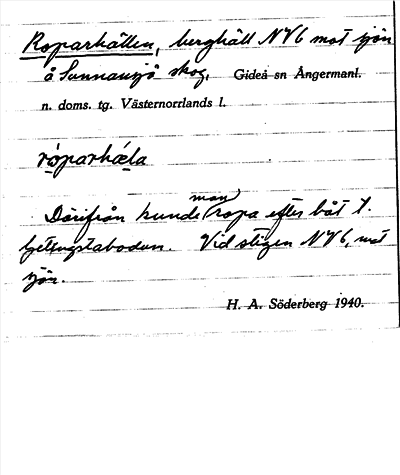 Roparhällen, berghäll NV6 mot sjön
å Sunnansjö skog, Gideå sn Ångermanl.
n. doms. tg. Västernorrlands l.
röparhæla
Därifrån kunde man ropa efter båt t.
Vid stigen NV6, mot
sjön.
H. A. Söderberg 1940.